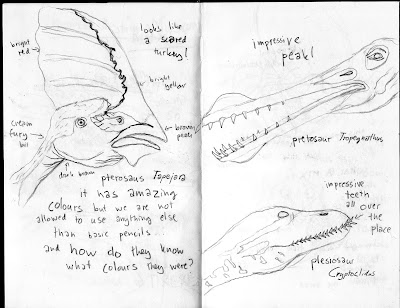 looks like
a scared
turkey!
bright
red
bright
yellow
cream
fury
bit
brown
peak
dark brown
pterosaus Tapejara
it has amazing
colours but we are not
allowed to use anything else
than basic pencils
and how do they know
what colours they were?
impressive
peak!
pretosaur Tropegnathus
impressive
teeth
all over
the
place
plesiosaw
Cryptoclidus